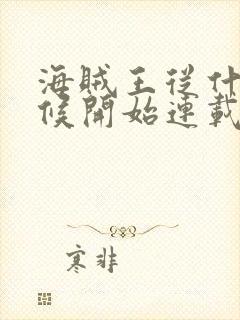 海賊王從什
候開始連載
寒非